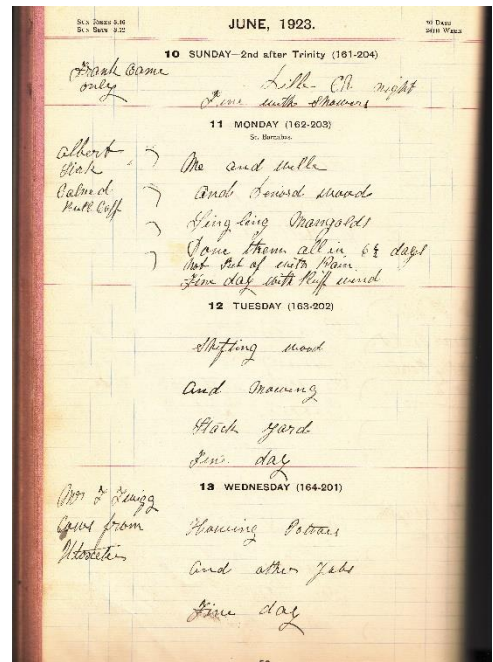 JUNE, 1923.
10 SUNDAY—2nd after Trinity (161-204)
Frank Came
only
night
Fine with Showers
11 MONDAY (162-203)
St. Barnabas.
Albert
Sick
Calved
Bull Calf
Me and Wille
And wood
Singling Mangolds
Done them all in 6½ days
Not Put of with Rain.
Fine day with Ruff wind
12 TUESDAY (163-202)
Shifting wood
And Mowing
Stack yard
Fine day
13 WEDNESDAY (164-201)
Mrs F Twigg
Cows from
Howing Potaters
And other Jobs
Fine day